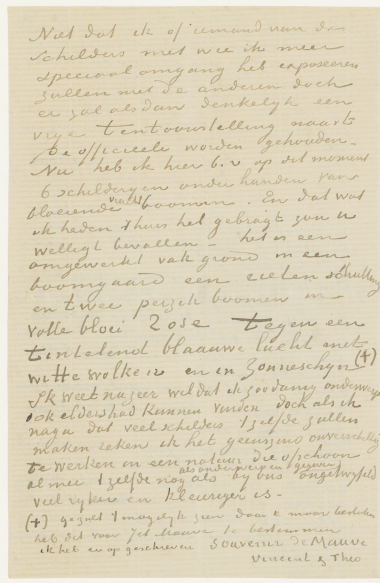 Niet dat ik of iemand van de
schilders met wie ik meer
speciaal omgang heb exposeeren
zullen met de anderen doch
er zal alsdan denkelijk een
vrije tentoonstelling naast
de officieele worden gehouden.
Nu heb ik hier b.v. op dit moment
6 schilderijen onder handen van
bloeiende vrucht boomen. En dat wat
ik heden t'huis heb gebragt zou u
welligt bevallen – het is een
omgewerkt vak grond in een
boomgaard een rieten schutting
en twee perzik boomen in
volle bloei Rose tegen een
tintelend blaauwe lucht met
witte wolken en in zonneschijn (+)
Ik weet nu zeer wel dat ik zoodanig onderwerp
ook elders had kunnen vinden doch als ik
naga dat veel schilders 't zelfde zullen
maken reken ik het geenszins onverschillig
te werken in een natuur die ofschoon
al mee 't zelfde nog als bij ons
als onderwerp en gegeven ongetwyfeld
veel rijker en kleuriger is –
(+) gij zult 't mogelijk zien daar ik maar besloten
heb dit voor Jet Mauve te bestemmen
ik heb er op geschreven Souvenir de Mauve
Vincent & Theo